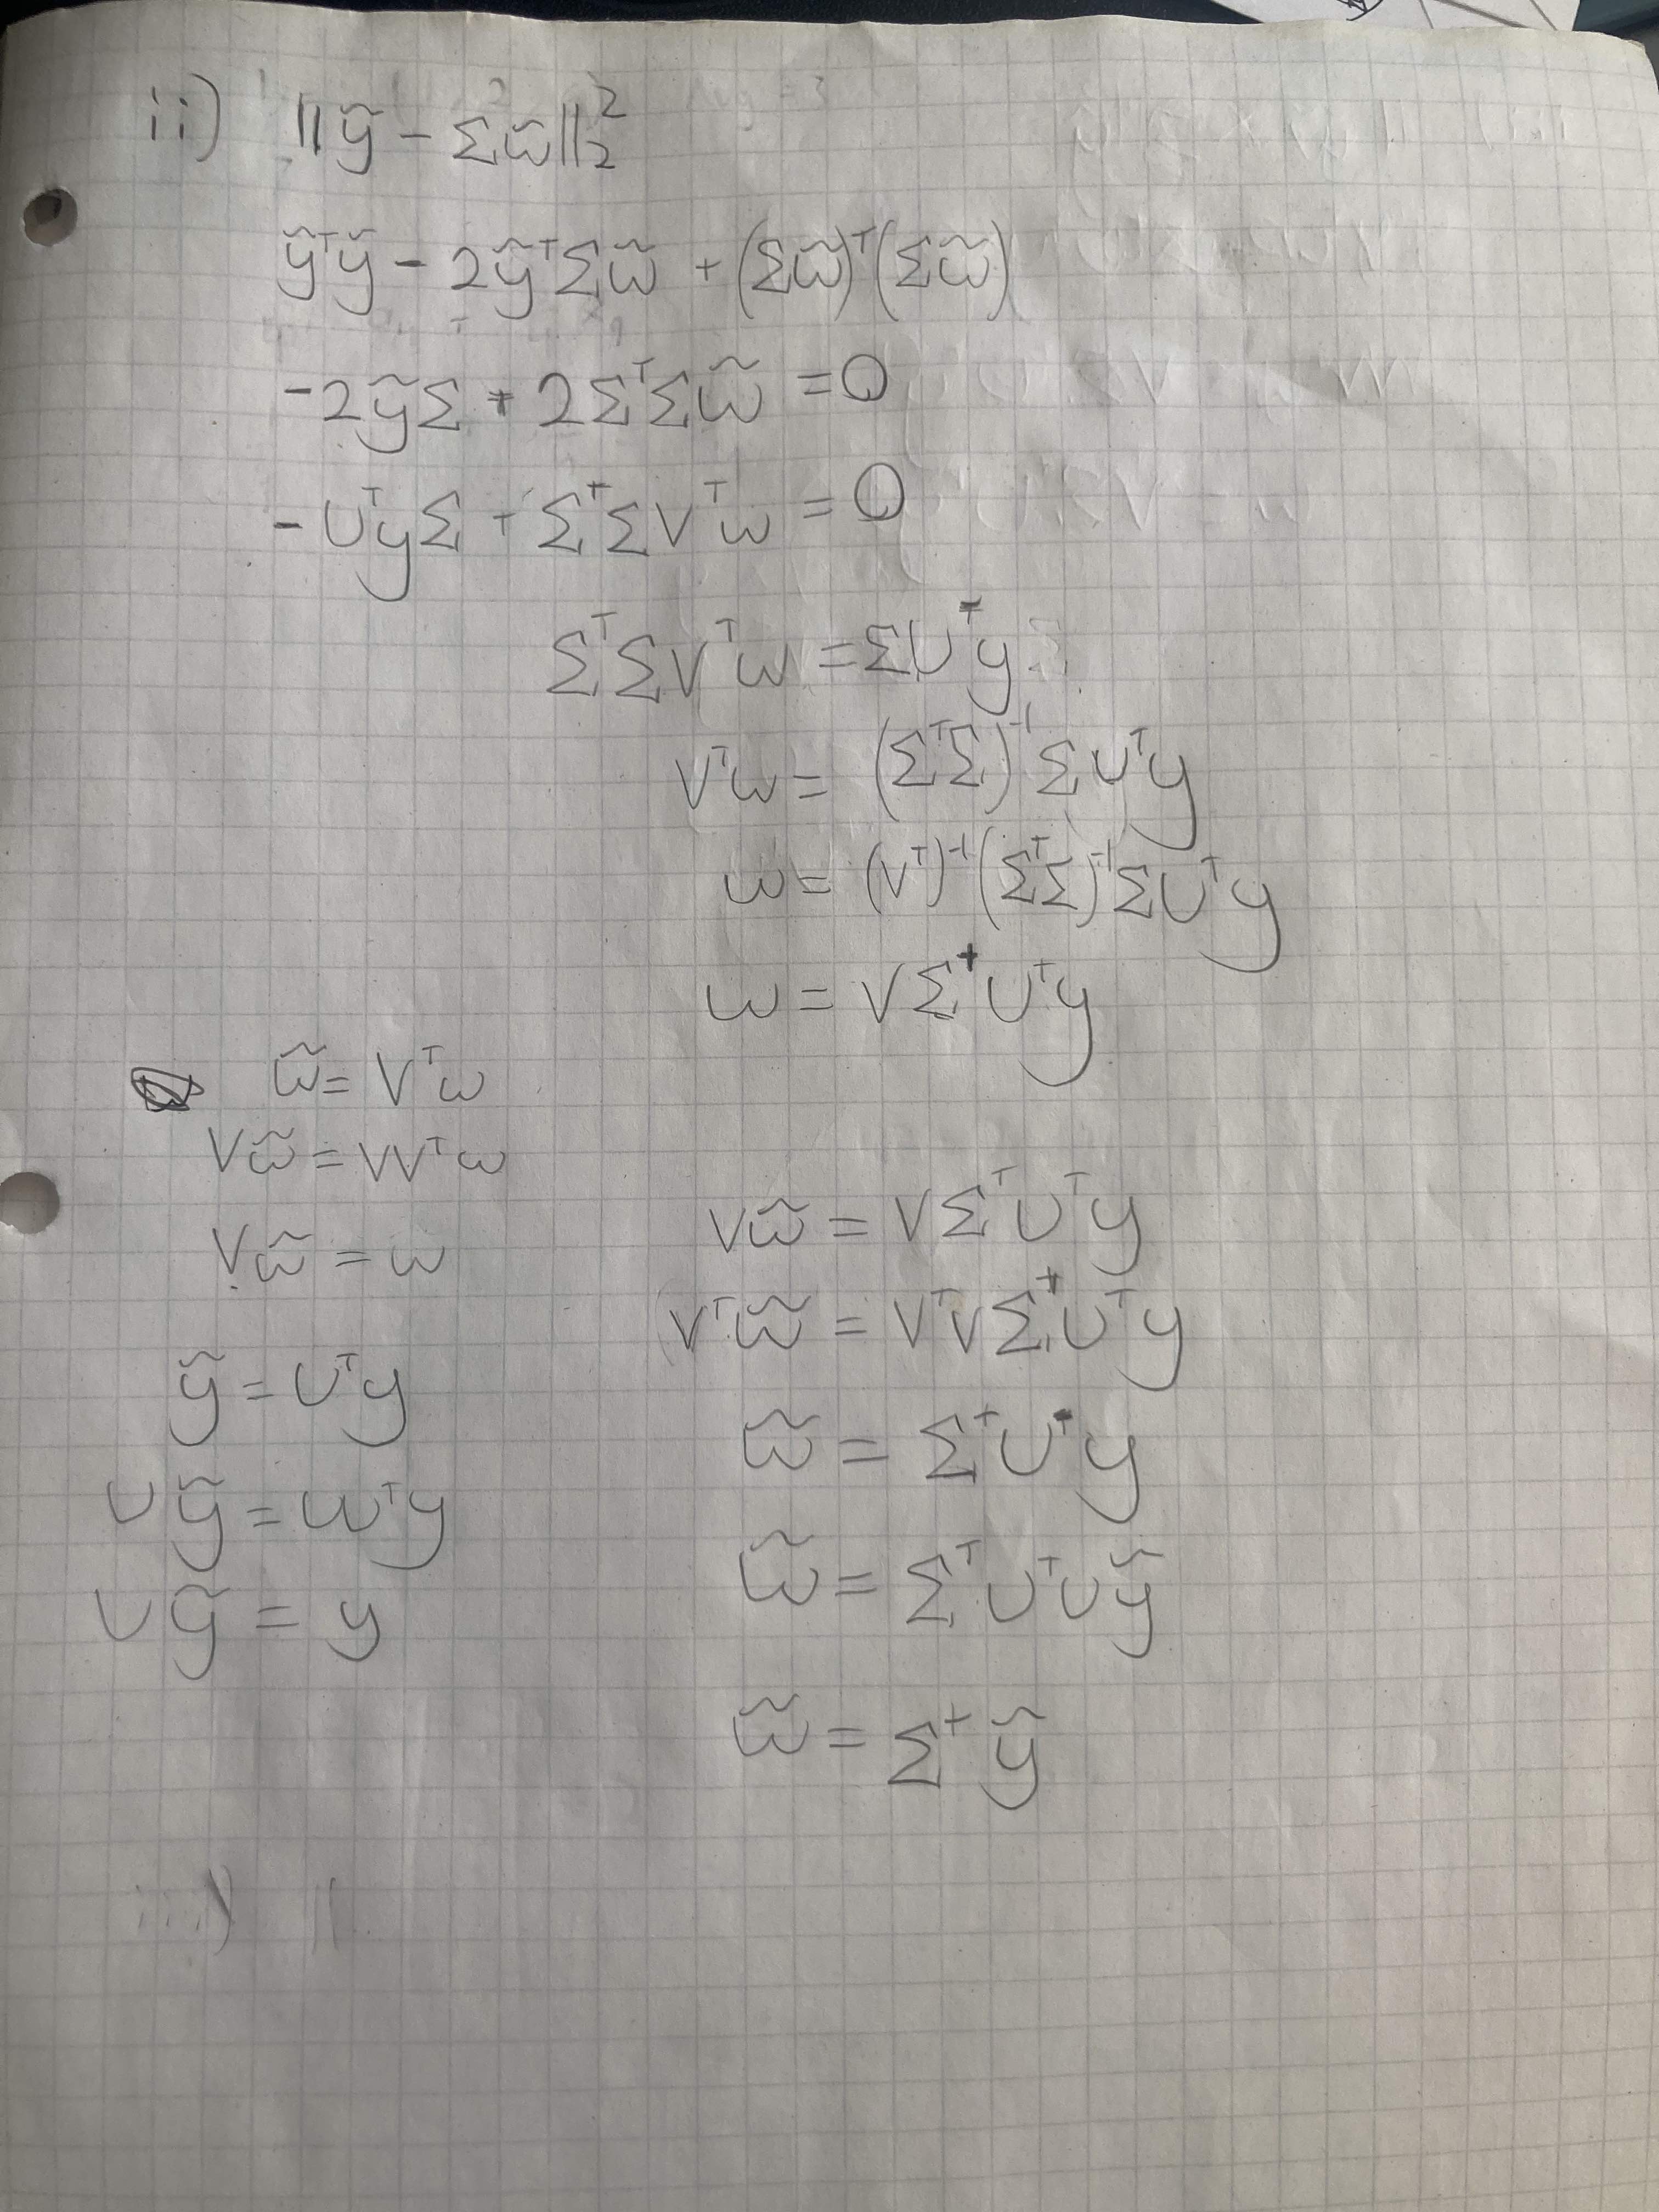 ii) ||ỹ - Σω̃||₂²
ỹᵀỹ - 2ỹᵀΣω̃ + (Σω̃)ᵀ(Σω̃)
-2ỹΣ + 2ΣᵀΣω̃ = 0
-UᵀyΣ + ΣᵀΣVᵀω = 0
ΣᵀΣVᵀω = ΣUᵀy
Vᵀω = (ΣᵀΣ)⁻¹ΣUᵀy
ω = (Vᵀ)⁻¹(ΣᵀΣ)⁻¹ΣUᵀy
ω = VΣ⁺Uᵀy
ω̃ = Vᵀω
Vω̃ = VVᵀω
Vω̃ = ω
ỹ = Uᵀy
Uỹ = UUᵀy
Uỹ = y
Vω̃ = VΣᵀUᵀy
Vᵀω̃ = VᵀVΣ⁺Uᵀy
ω̃ = Σ⁺Uᵀy
ω̃ = ΣᵀUᵀUỹ
ω̃ = Σ⁺ỹ
iii) ||